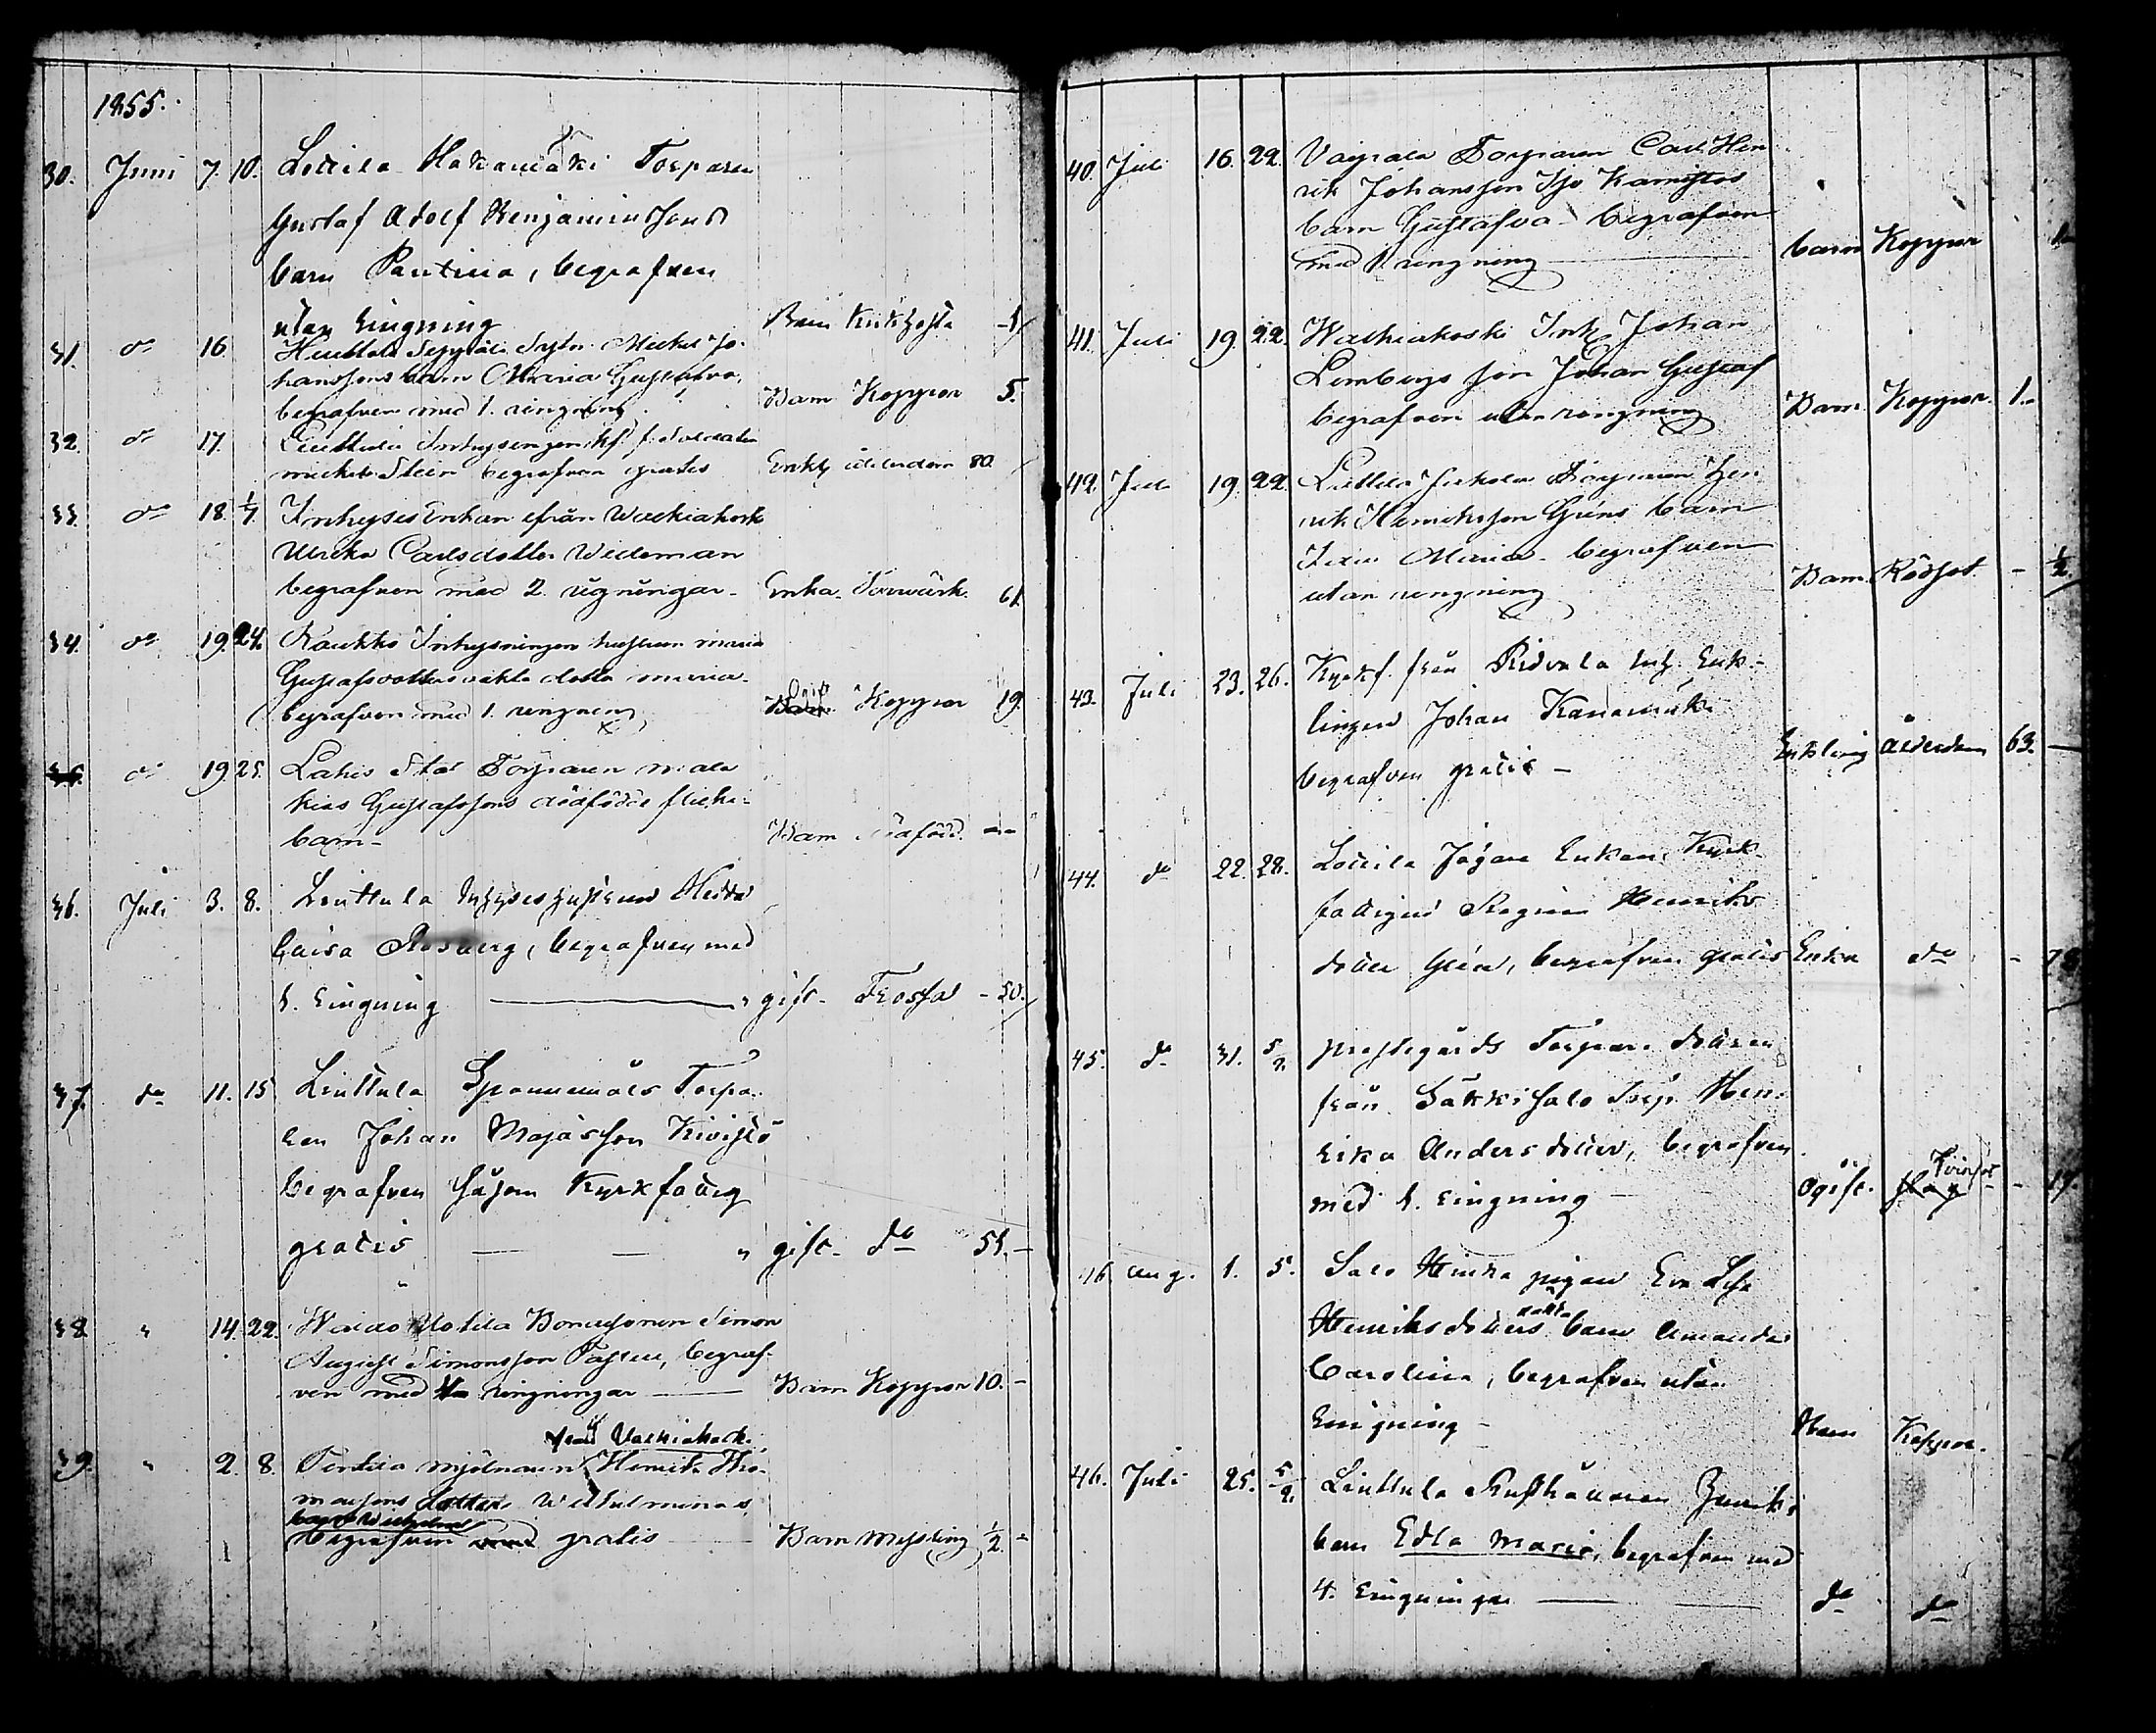 1855.
30. Juni 7. 10. Lottila Hakamäki Torparen
Gustaf Adolf Benjaminssons
barn Pautina, begrafven
utan ringning Barn Kikhosta 1
31. do 16. Huttola Seppälä Mickel Jo-
hanssons barn Maria Gustafva,
begrafven med 1. ringning. Barn Koppor 5.
32. do 17. Liuttula Inhysingen f.d. soldaten
Mickel Steen begrafven gratis Enkl ålderdom 80.
33. do 18. 1/7. Inhyses Enkan ifrån Walkiakoski
Ulrika Carlsdotter Wideman
begrafven med 2. rigningar. Enka. 61.
34. do 19. 24. Kaukko Inhysningen hustrun Maria
Gustafsdotters äkta dotter Maria
begrafven med 1. ringning Ogift Koppor 19.
35. do 19 25. Lahis Torparen Mala
kias Gustafssons dödfödde flicke-
barn - Barn dödfödd --
36. Juli 3. 8. Liuttula Inhyses hustrun Hedda
Lovisa Rosberg, begrafven med
1. ringning gift. Frossa - 50.
37. do 11. 15 Liuttula Torpa-
ren Johan Kivistö
begrafven såsom Kyrkfattig
gratis " gift. do 51. -
38 " 14. 22. Uotila Bondesonen Simon
August Simonsson begraf-
ven med ringningar Barn Koppor 10. -
från Valkiakoski
39. " 2. 8. Mjölnaren Henrik Tho-
massons dotter Wilhelminas
barn Wilhelmina
begrafven gratis Barn Messling 1/2. -
40. Juli 16. 22. Torparen Carl Hen-
rik Johansson Iso
barn Gustafva - begrafven
med 1 ringning barn Koppor 1
41. Juli 19. 22. Walkiakoski Inh. Johan
Lembergs son Johan Gustaf
begrafven utan ringning Barn. Koppor. 1.
42. Juli 19. 22. Liuttula Torparen Hen-
rik Henriksson Gréns barn
Maria - begrafven
utan ringning Barn. Rödsot. - 1/2.
43. Juli 23. 26. Kyrkf. från Ridvala Inh. Enk-
lingen Johan
begrafven gratis - Enkling ålderdom 63. -
44. do 22. 28. Lottila Jägare Enkan, Kyrk-
fattigen Regina Henriks-
dotter Grén, begrafven gratis Enka do - 78
45. do 31. 5/8. Prestegårds Torpare dottren
från Säkkisalo Torp Hen-
rika Andersdotter, begrafven
med 1. ringning Ogift. - 17.
46. Aug. 1. 5. Salo pigan Eva Lisa
Henriksdotters oäkta barn Amanda
Carolina, begrafven utan
ringning - Barn Koppor.
46. Juli 25. 5/8. Liuttula Rusthållaren Henriks
barn Edla Maria, begrafven med
4. ringningar do do